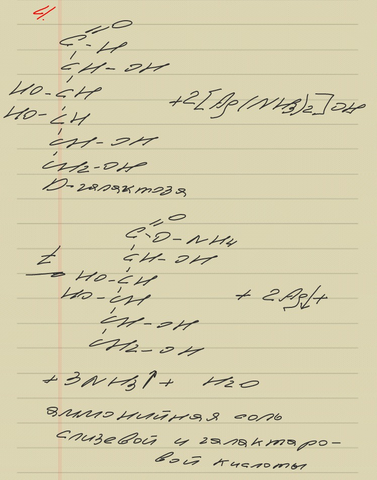 4)
C=O
C-H
CH-OH
HO-CH
+2[Ag(NH3)2]OH
HO-CH
CH-OH
CH2-OH
D-галактоза
C=O
C-O-NH4
t
CH-OH
HO-CH
HO-CH
+ 2Ag↓+
CH-OH
CH2-OH
+3NH3↑+ H2O
аммонийная соль
слизевой и галактаро-
вой кислоты